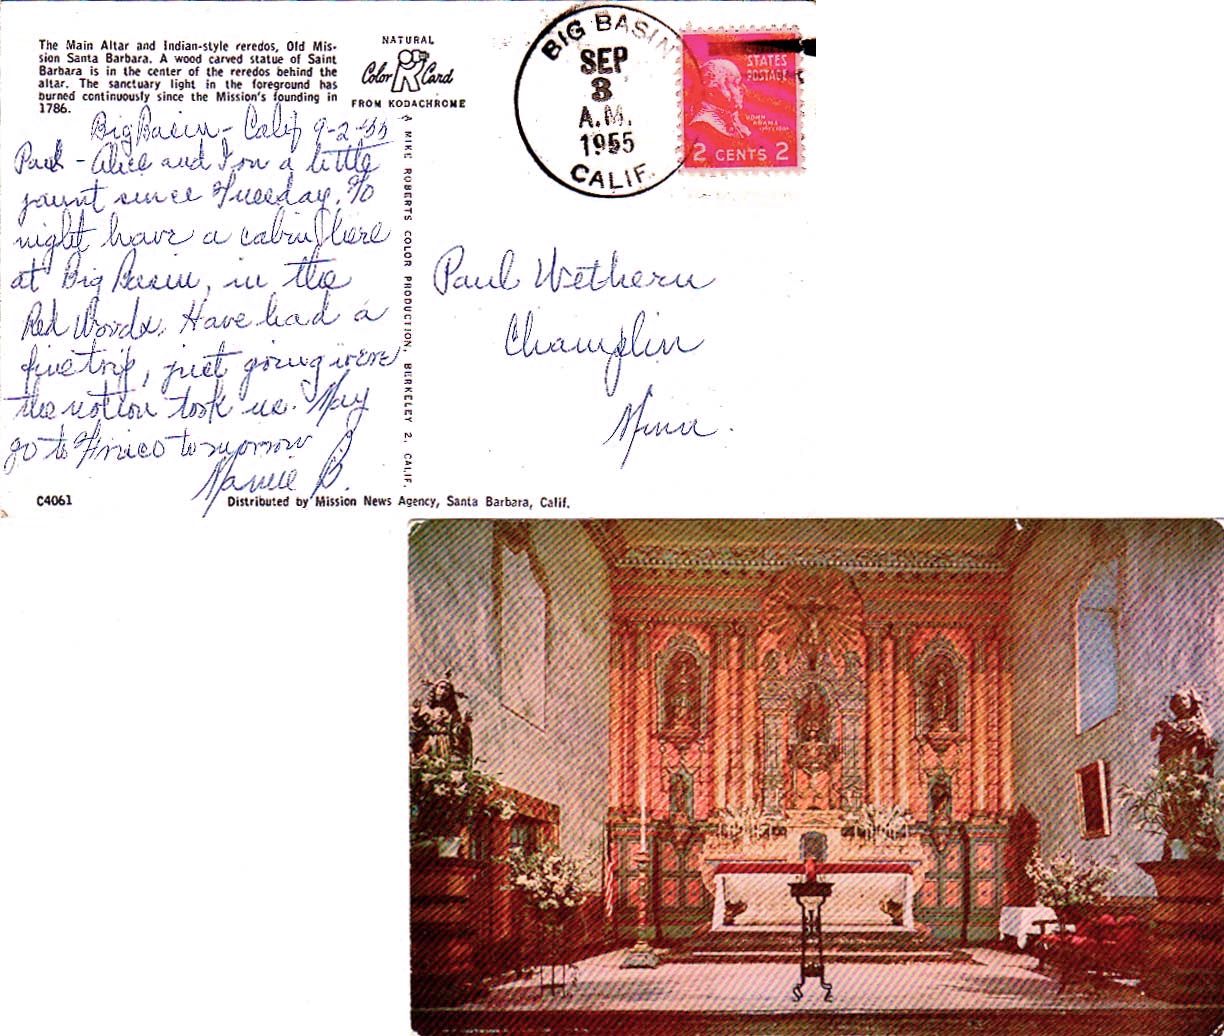 The Main Altar and Indian-style reredos, Old Mis-
sion Santa Barbara. A wood carved statue of Saint
Barbara is in the center of the reredos behind the
altar. The sanctuary light in the foreground has
burned continuously since the Mission's founding in
1786.
NATURAL
Color Card
FROM KODACHROME
BIG BASIN
SEP
3
A.M.
1955
CALIF.
STATES
POSTAGE
JOHN
ADAMS
2 CENTS 2
Big Basin - Calif 9-2-55
Paul - Alice and I on a little
jaunt since Tuesday. To
night have a cabin here
at Big Basin, in the
Red Woods. Have had a
fine trip, just going were
the notion took us. May
go to Frisco tomorrow
B.
MIKE ROBERTS COLOR PRODUCTION, BERKELEY 2, CALIF.
Paul Wethern
Champlin
Minn.
C4061
Distributed by Mission News Agency, Santa Barbara, Calif.